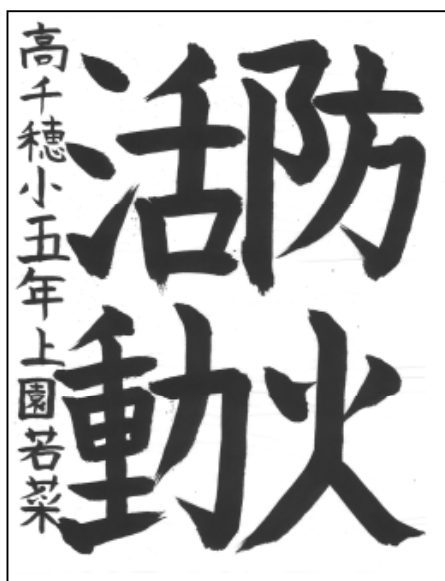 防火
活動
高千穂小五年上園若菜